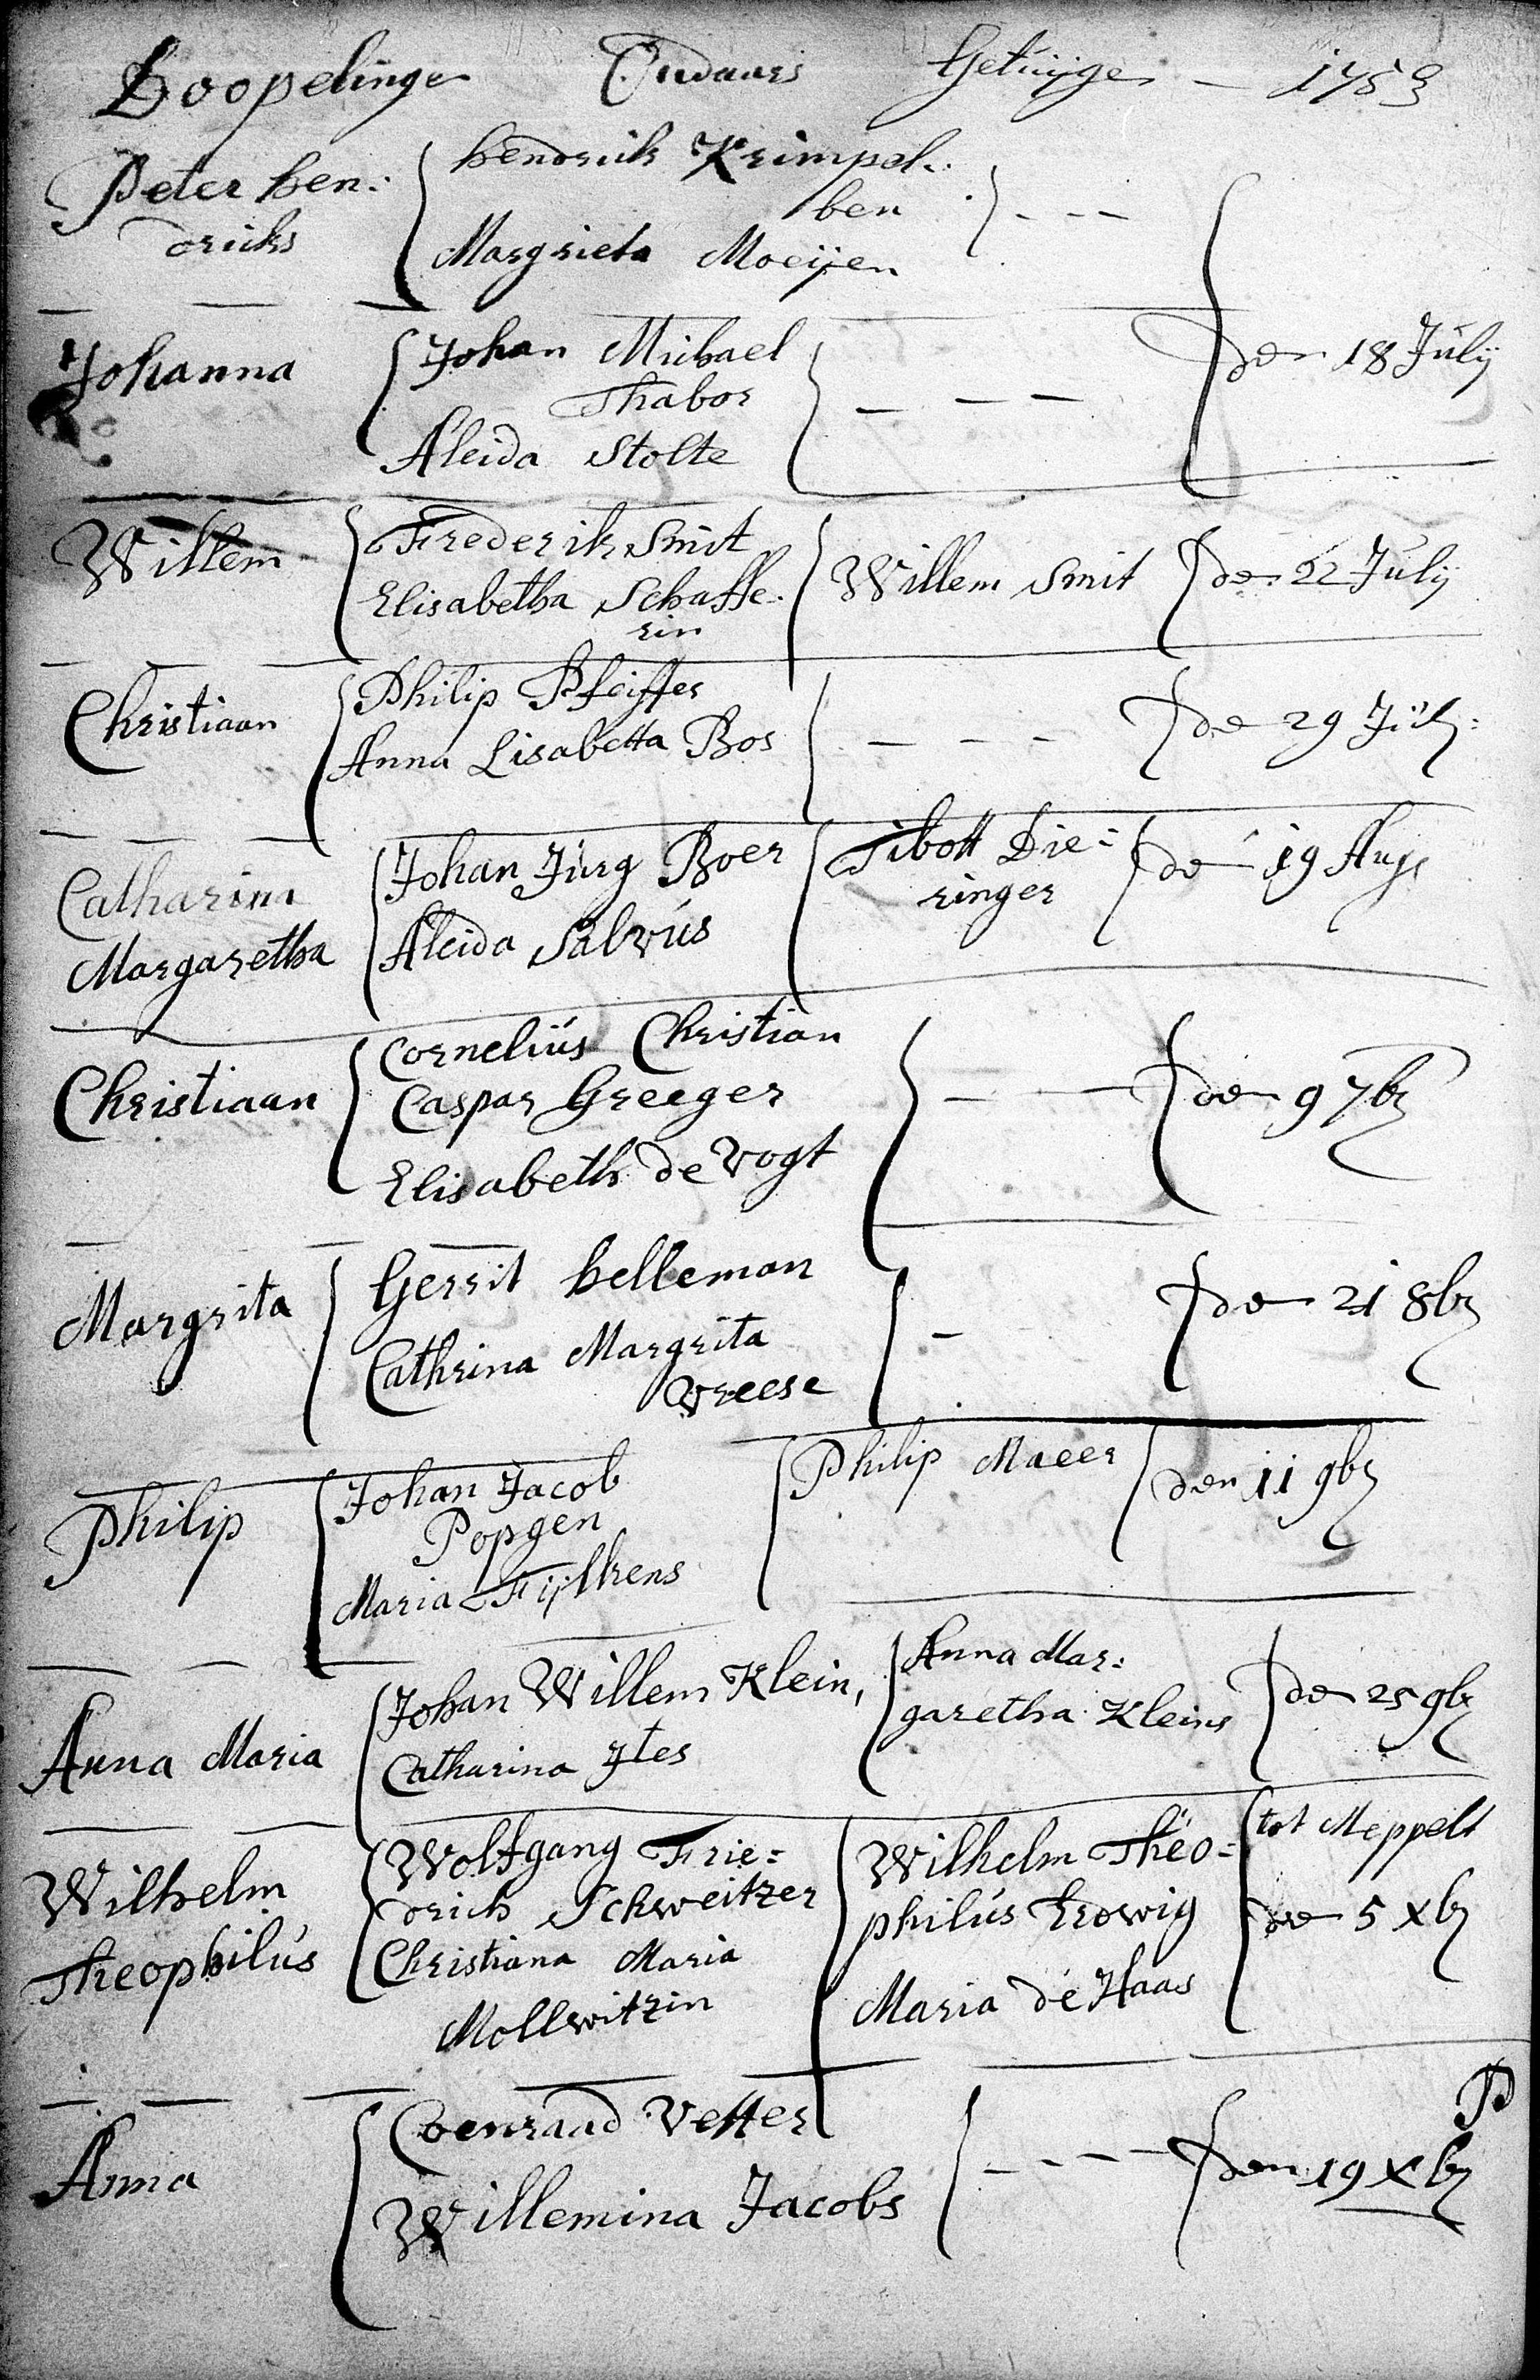 Doopelinge Oudaars Getuijge — 1753
Peter Hen:
dricks
Hendrick Krimpel:
ben
Margrieta Moeijen
Johanna
Johan Michael
Thabor
Aleida Stolte
den 18 Julij
Willem
Frederik Smit
Elisabetha Schaffe:
rin
Willem Smit
den 22 Julij
Christiaan
Philip Pfeiffer
Anna Lisabetta Bos
de 29 Julij:
Catharina
Margaretha
Johan Jürg Boer
Aleida Salvús
Tibott Die:
ringer
de 19 Aug
Christiaan
Cornelius Christian
Caspar Greeger
Elisabeth de Vogt
den 9 7br
Margrita
Gerrit Helleman
Cathrina Margrita
Vreese
de 21 8br
Philip
Johan Jacob
Popgen
Maria Fijlkens
Philip Maeer
den 11 9br
Anna Maria
Johan Willem Klein,
Catharina Ites
Anna Mar:
garetha Kleins
de 25 9br
Wilhelm
Theophilús
Wolfgang Frie=
drich Schweitzer
Christiana Maria
Mollwitzin
Wilhelm Théo=
philús Erdwig
Maria de Haas
tot Meppelt
de 5 Xbr
Anna
Coenraad Vetter
Willemina Jacobs
den 19 Xbr